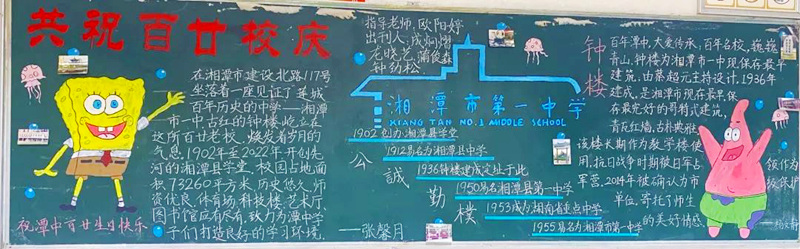 共祝百廿校庆
在湘潭市建设北路117号
坐落着一座见证了莲城
百年历史的中学—湘潭
市一中古红的钟楼屹立在
这所百廿老校,焕发着岁月的
气息.1902年至2022年.开创先
河的湘潭县学堂.校园占地面
积73260平方米,历史悠久,师
资优良.体育场.科技楼.艺术厅
图书馆应有尽有,致力为潭中学
子们打造良好的学习环境.
祝潭中百廿生日快乐
——张馨月
指导老师.欧阳婷
出刊人:
钟劲松
湘潭市第一中学
XIANG TAN NO.1 MIDDLE SCHOOL
1902创办湘潭县学堂
1912易名为湘潭县中学
1936钟楼建成定址于此
1950易名湘潭县第一中学
1953成为湖南省重点中学
1955易名为湘潭市第一中学
公诚勤
钟楼
百年潭中,大爱传承,百年名校,巍巍
青山.钟楼为湘潭市一中现保存最早
建筑.由蔡超元主持设计.1936年
建成,是湘潭市现存最早保
存最完好的哥特式建筑,
青瓦红墙,古朴典雅.
该楼长期作为教学楼使
用.抗日战争时期被日军占
军营.2014年被确认为市
单位.寄托了师生
的美好情感.